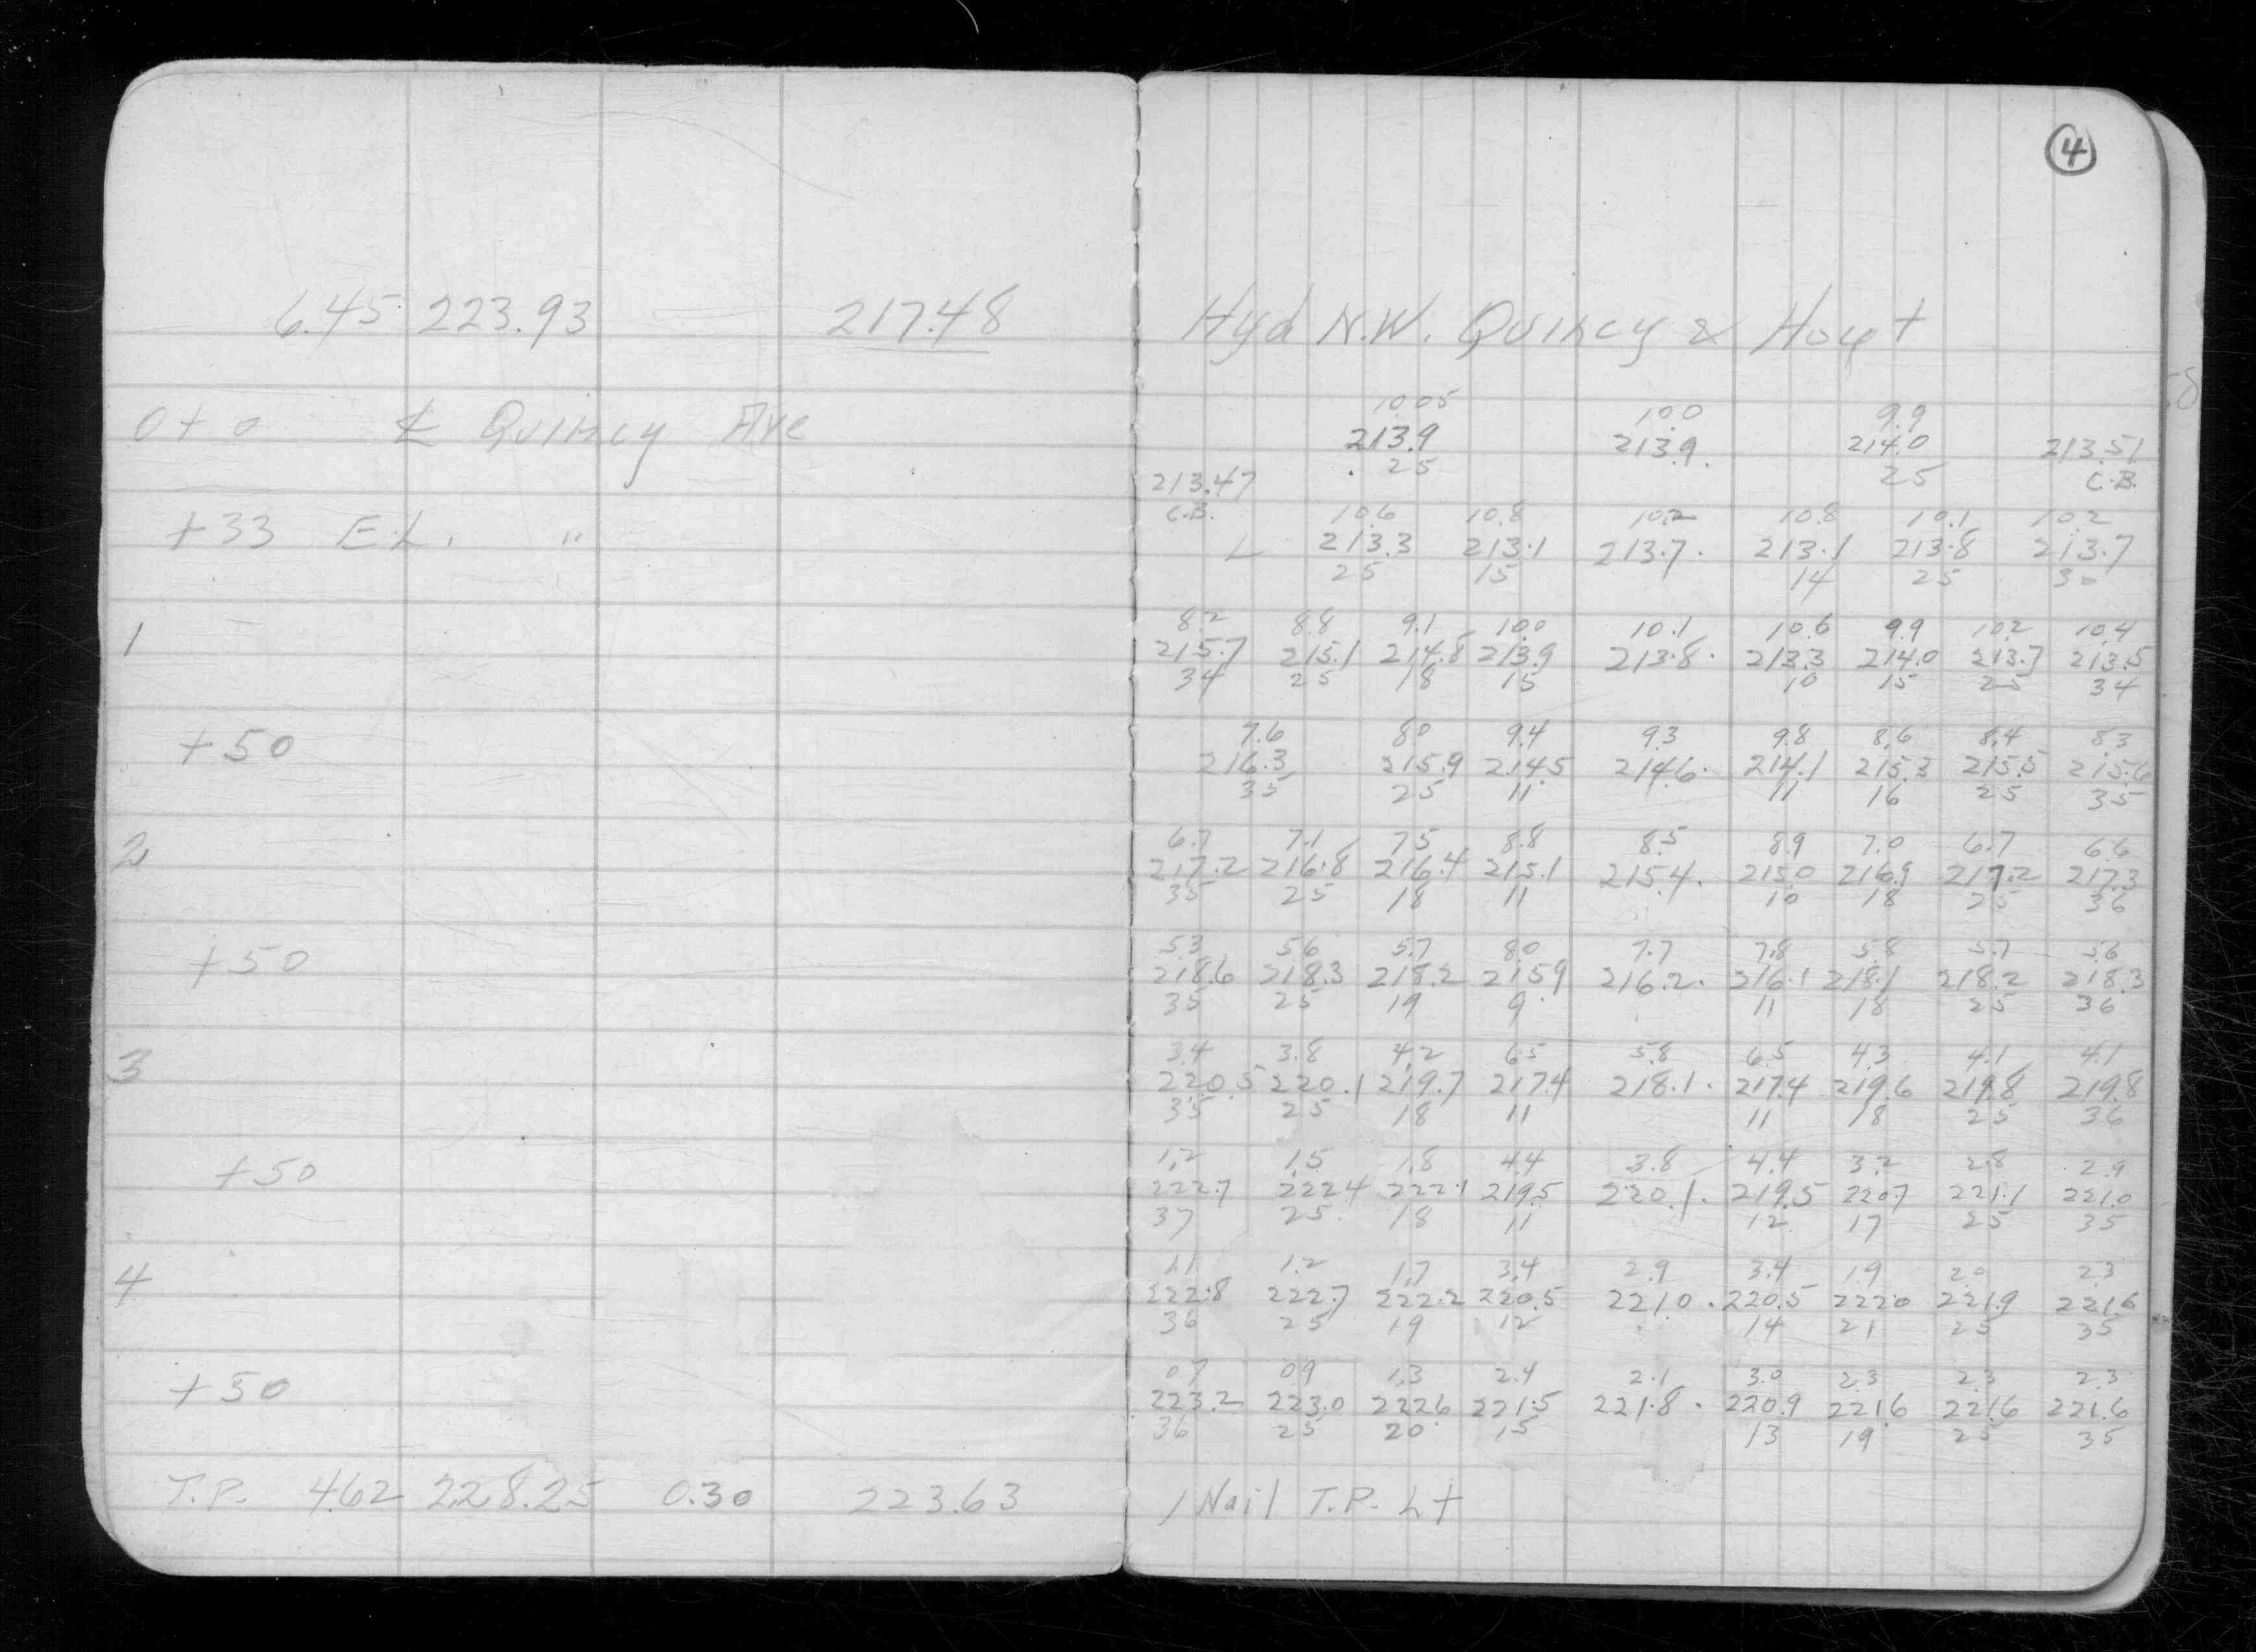 4
6.45 223.93 217.48
Hyd N.W. Quincy & Hoyt
10.05 10.0 9.9
0+0 ℄ Quincy Ave
213.9 213.9 214.0 213.51
25 25 C.B.
213.47
C.B. 10.6 10.8 10.2 10.8 10.1 10.2
+33 E.L. "
L 213.3 213.1 213.7 213.1 213.8 213.7
25 15 14 25 30
8.2 8.8 9.1 10.0 10.1 10.6 9.9 10.2 10.4
1
215.7 215.1 214.8 213.9 213.8 213.3 214.0 213.7 213.5
34 25 18 15 10 15 25 34
7.6 8.0 9.4 9.3 9.8 8.6 8.4 8.3
+50
216.3 215.9 214.5 214.6 214.1 215.3 215.5 215.6
35 25 11 11 16 25 35
6.7 7.1 7.5 8.8 8.5 8.9 7.0 6.7 6.6
2
217.2 216.8 216.4 215.1 215.4 215.0 216.9 217.2 217.3
35 25 18 11 10 18 25 36
5.3 5.6 5.7 8.0 7.7 7.8 5.8 5.7 5.6
+50
218.6 218.3 218.2 215.9 216.2 216.1 218.1 218.2 218.3
35 25 19 9 11 18 25 36
3.4 3.8 4.2 6.5 5.8 6.5 4.3 4.1 4.1
3
220.5 220.1 219.7 217.4 218.1 217.4 219.6 219.8 219.8
35 25 18 11 11 18 25 36
1.2 1.5 1.8 4.4 3.8 4.4 3.2 2.8 2.9
+50
222.7 222.4 222.1 219.5 220.1 219.5 220.7 221.1 221.0
37 25 18 11 12 17 25 35
1.1 1.2 1.7 3.4 2.9 3.4 1.9 2.0 2.3
4
222.8 222.7 222.2 220.5 221.0 220.5 222.0 221.9 221.6
36 25 19 12 14 21 25 35
0.7 0.9 1.3 2.4 2.1 3.0 2.3 2.3 2.3
+50
223.2 223.0 222.6 221.5 221.8 220.9 221.6 221.6 221.6
36 25 20 15 13 19 25 35
T.P. 4.62 228.25 0.30 223.63
1 Nail T.P. Lt